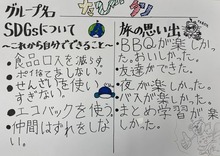 グループ名
SDGsについて
～これから自分でできること～
・食品ロスを減らす。
・ポイすてをしない。
・せんざいを使い
すぎない。
・エコバックを使う。
・仲間はずれをし
ない。
旅の思い出
・BBQが楽しか
った。おいしかった。
・友達ができた。
・夜が楽しかった。
・バスが楽しかった。
・まとめ学習が楽
しかった。